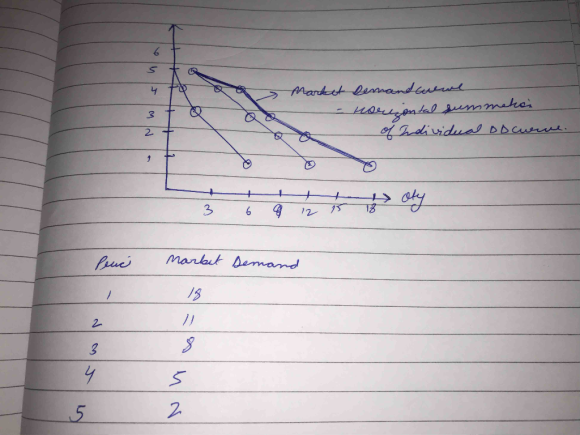 6
5
4
3
2
1
3 6 9 12 15 18 Qty
Market Demand curve
= Horizontal summation
of Individual DD curve.
Price Market Demand
1 18
2 11
3 8
4 5
5 2